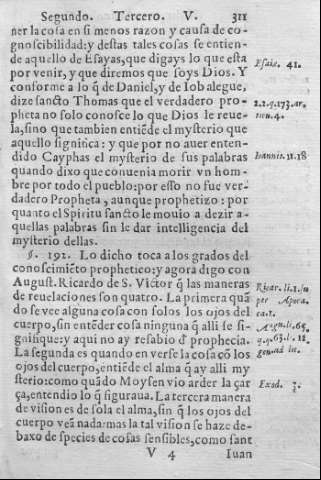 Segundo. Tercero. V. 311
ner la cosa en si menos razon y causa de co-
gnoscibilidad: y destas tales cosas se entien-
de aquello de Esayas, que digays lo que esta
Esaiæ. 41.
por venir, y que diremos que soys Dios. Y
conforme a lo q̃ de Daniel, y de Iob alegue,
dize sancto Thomas que el verdadero pro-
2.2.q.173.ar-
pheta no solo conosce lo que Dios le reue-
la, sino que tambien entiẽde el mysterio que
aquello significa: y que por no auer enten-
dido Cayphas el mysterio de sus palabras
Ioannis. 11. 18
quando dixo que conuenia morir vn hom-
bre por todo el pueblo: por esso no fue ver-
dadero Propheta, aunque prophetizo: por
quanto el Spiritu sancto le mouio a dezir a-
quellas palabras sin le dar intelligencia del
mysterio dellas.
§. 192. Lo dicho toca a los grados del
conoscimiẽto prophetico: y agora digo con
August. Ricardo de S. Victor q̃ las maneras
Ricar. li. 1. su
de reuelaciones son quatro. La primera quã
per Apoca.
do se vee alguna cosa con solos los ojos del
ca. 1.
cuerpo, sin entẽder cosa ninguna q̃ alli se si-
gnifique: y aqui no ay resabio d̃ prophecia.
La segunda es quando en verse la cosa cõ los
ojos del cuerpo, entiẽde el alma q̃ ay alli my
sterio: como quãdo Moysen vio arder la çar
Exod. 3.
ça, entendio lo q̃ figuraua. La tercera manera
de vision es de sola el alma, sin q̃ los ojos del
cuerpo vea nada: mas la tal vision se haze de-
baxo de species de cosas sensibles, como sant
V 4 Iuan